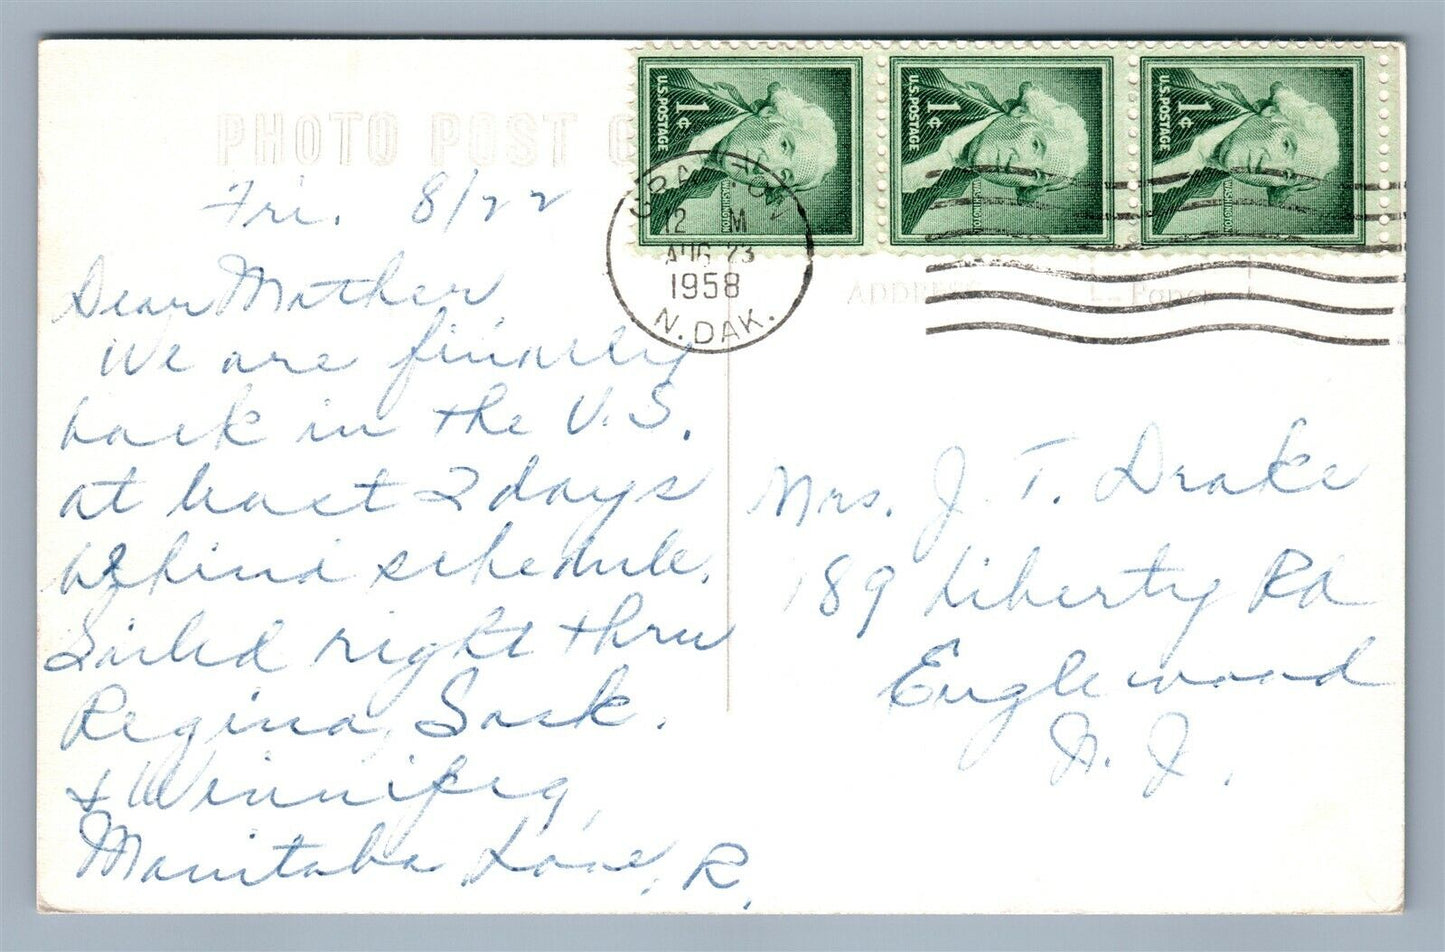 PHOTO POST C
1¢
U.S. POSTAGE
WASHINGTON
1¢
U.S. POSTAGE
WASHINGTON
1¢
U.S. POSTAGE
WASHINGTON
GRAFTON
12 M
AUG 23
1958
N. DAK.
ADDRESS
Fri. 8/22
Dear Mother
We are finally
back in the U.S.
at least 2 days
behind schedule.
Sailed right thru
Regina, Sask.
& Winnipeg,
Manitoba Love, R.
Mrs. J. T. Drake
189 Liberty Rd
Englewood
N. J.